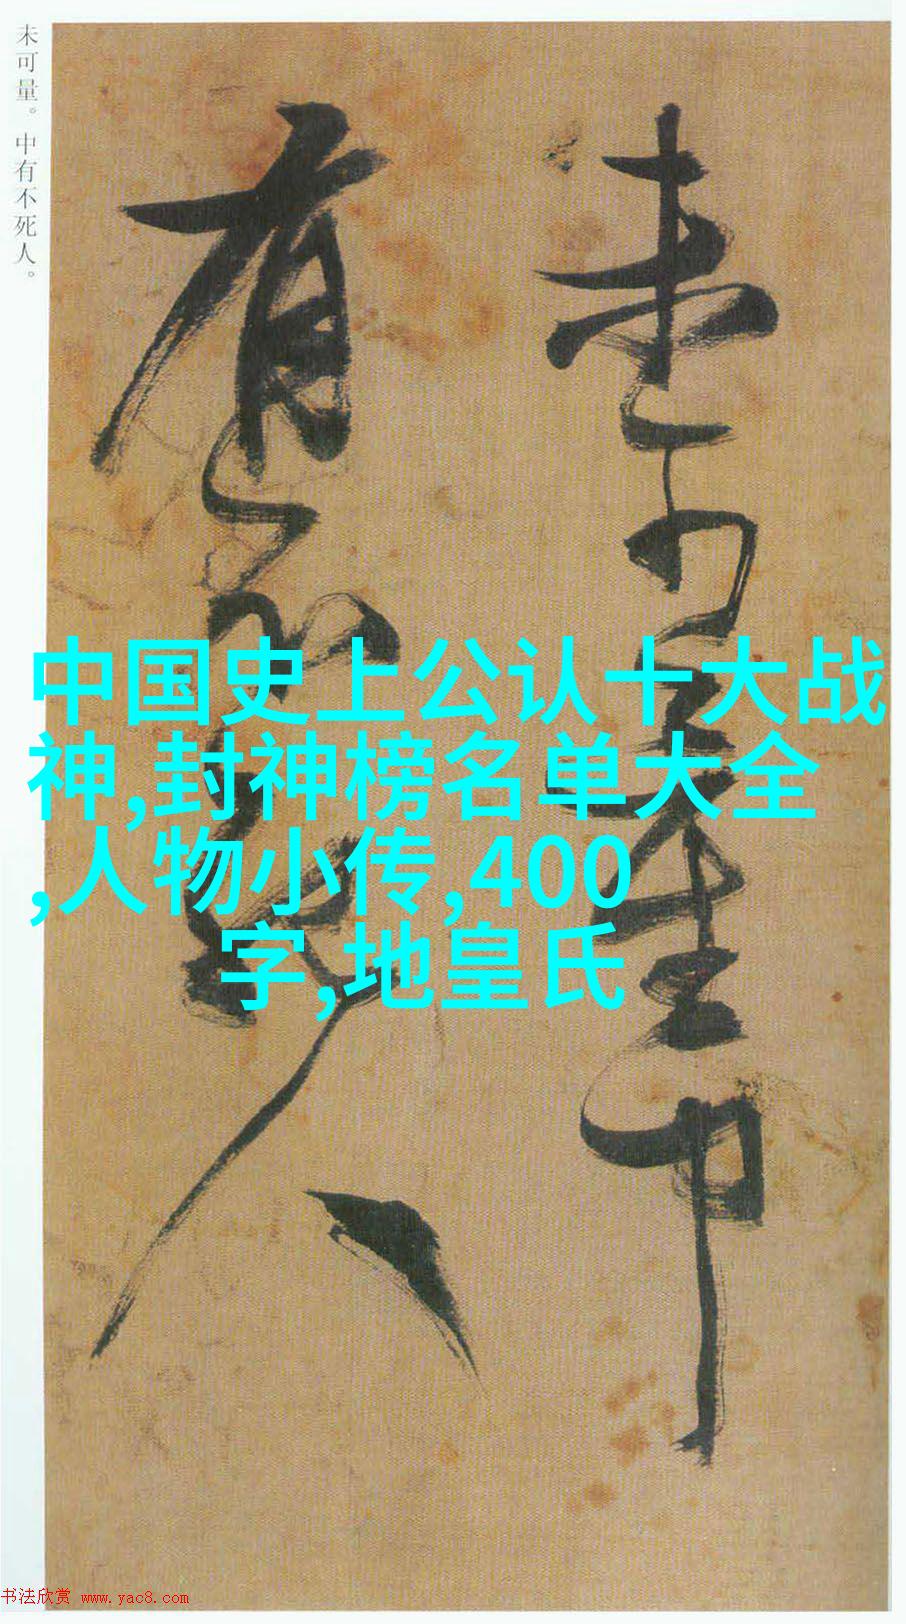 未可量。中有不死人。
未可量中
有不死人
中国史上公认十大战
神,封神榜名单大全
,人物小传,400
字,地皇氏
书法欣赏 www.yac8.com